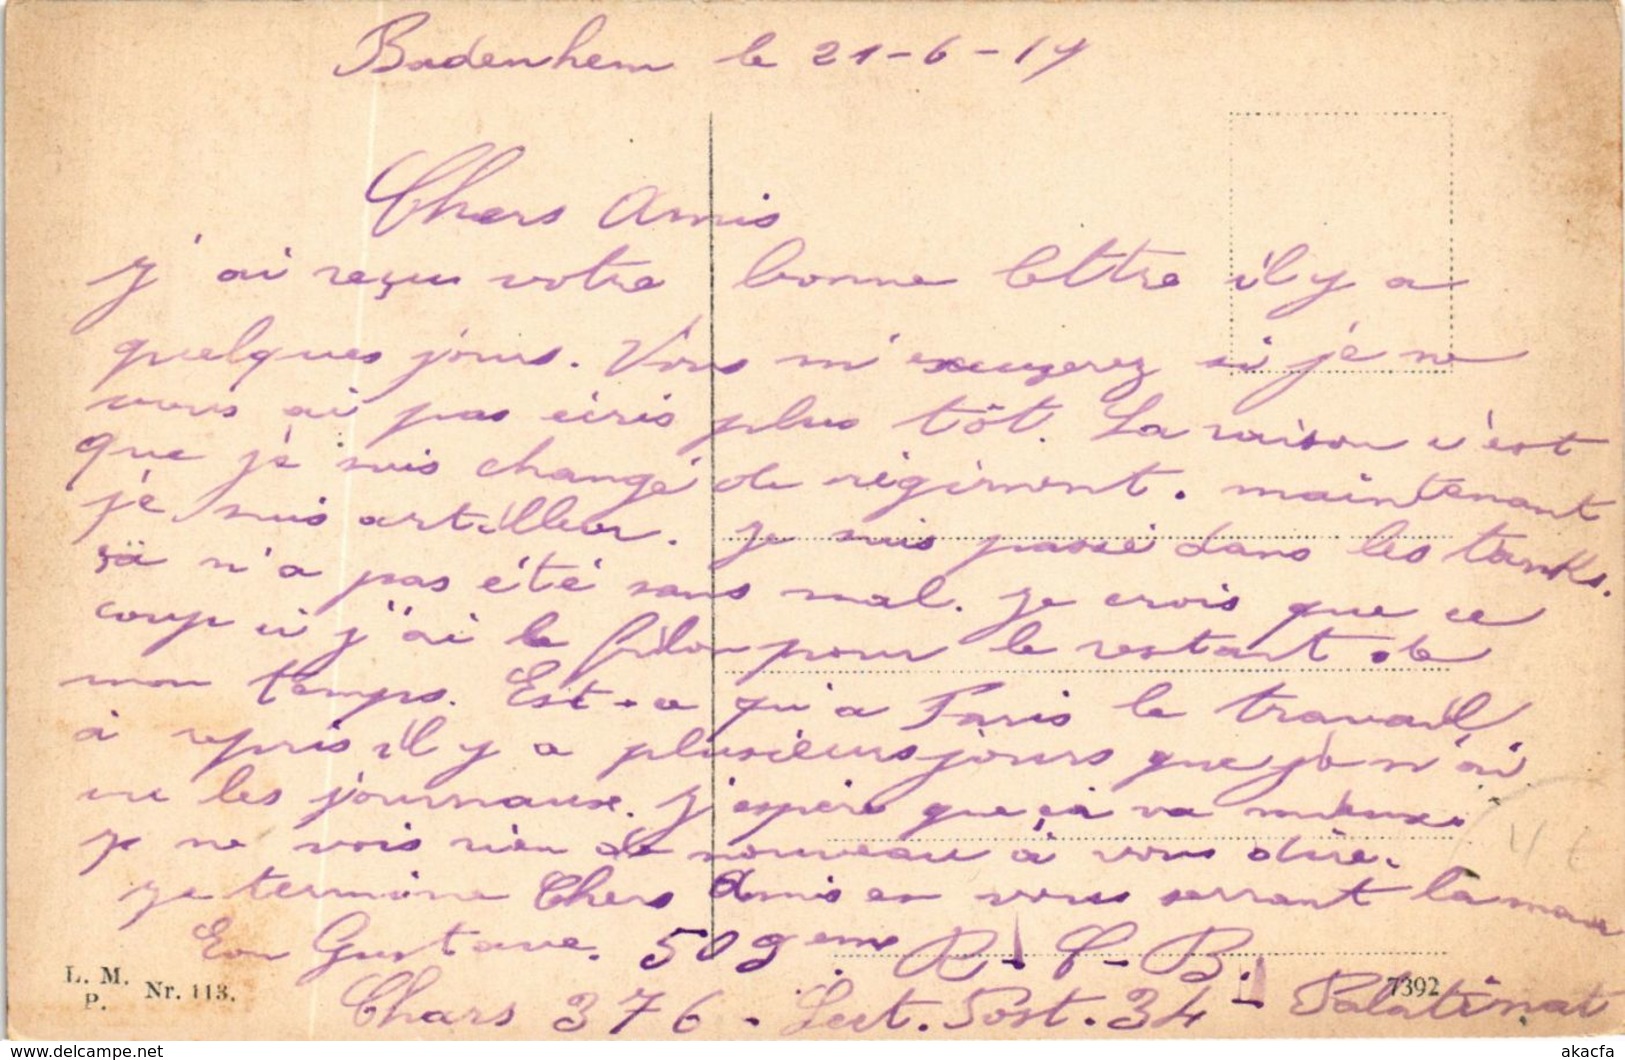 Badenhem le 21-6-19
Chers Amis
j'ai reçus votre bonne lettre il y a
quelques jours. Vous m'excuzerez si je ne
vous ai pas écris plus tôt. La raison c'est
que je suis changé de régiment. maintenant
je suis artilleur. Je suis passé dans les tanks.
sä n'a pas été sans mal. Je crois que ce
coup si j'ai le filon pour le restant de
mon temps. Est-ce qu'a Paris le travail
à repris il y a plusieurs jours que je n'ai
vu les journaux. J'espère que çà va mieux.
je ne vois rien de nouveau à vous dire.
Je termine Chers Amis en vous serrant la main
Gustave. 509eme R-C-B.
L. M. P. Nr. 113. 7392
Chars 376. Sect. Post. 34 - Palatinat
akacfa